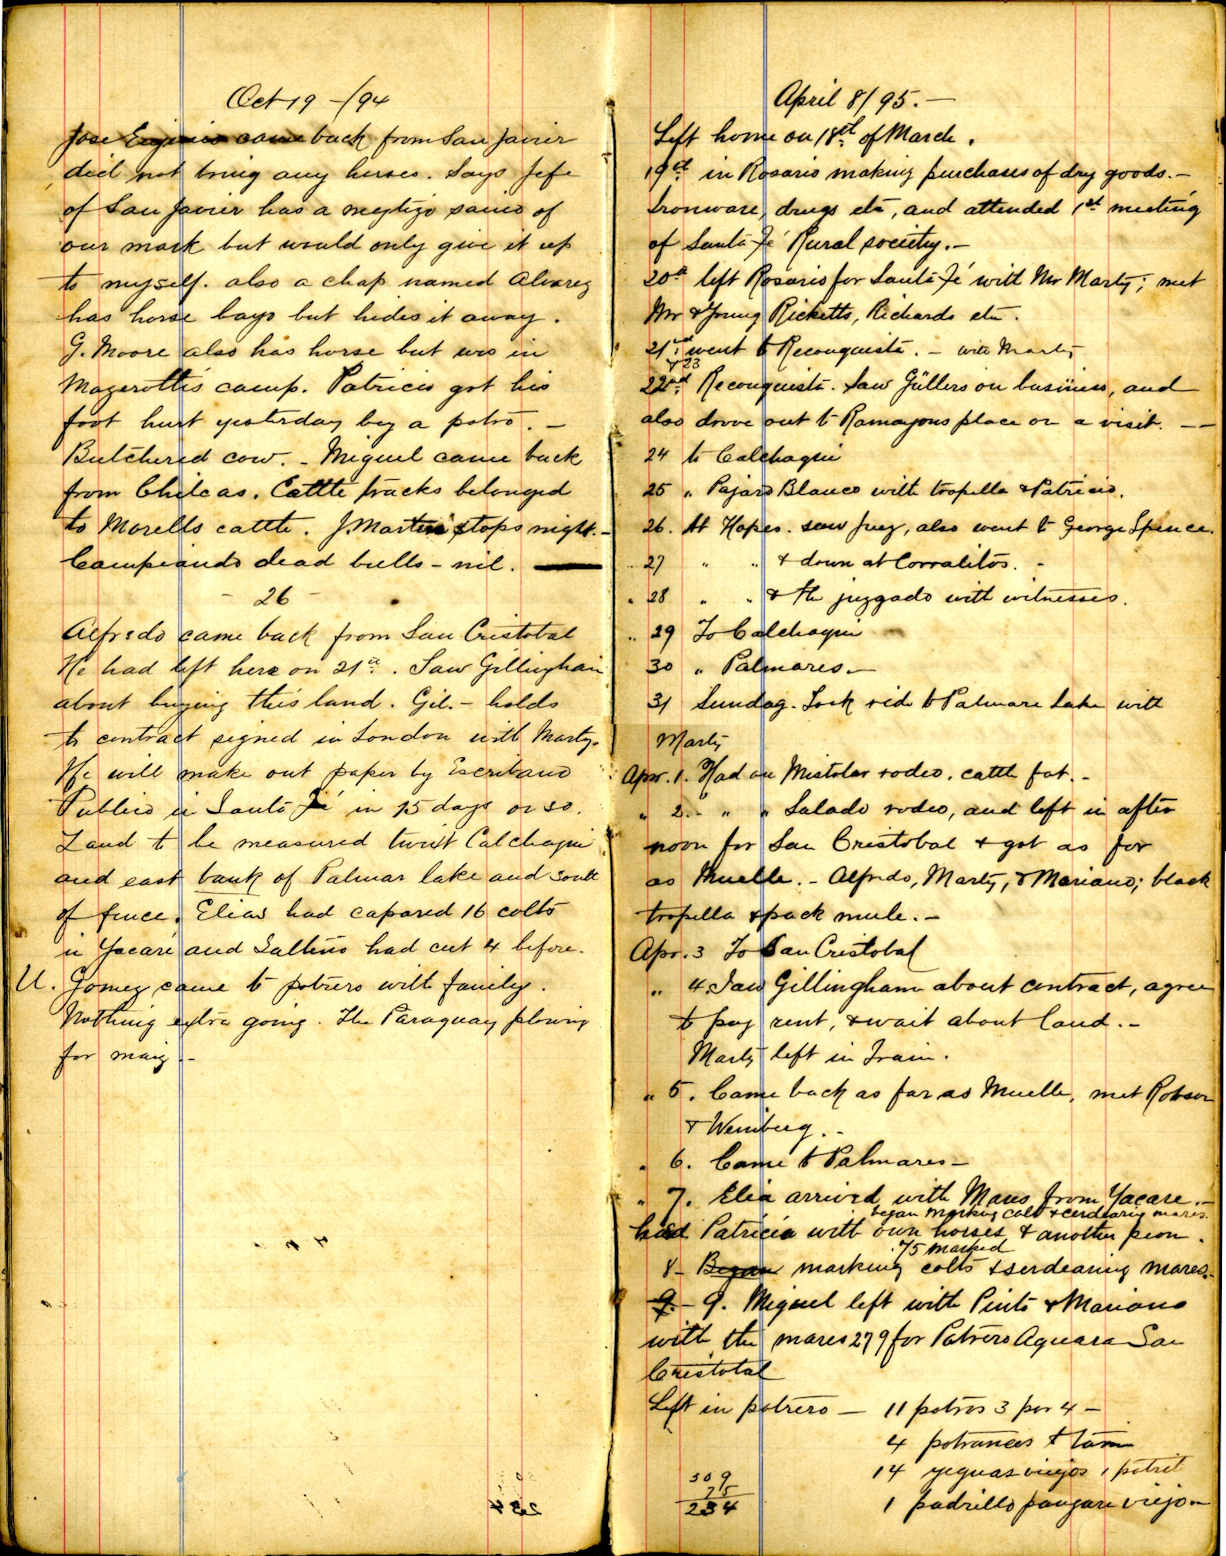 Oct 19 - /94
Jose Eugenio came back from San Javier
did not bring any horses. Says Jefe
of San Javier has a mestizo saino of
our mark but would only give it up
to myself. also a chap named Alvarez
has horse bayo but hides it away.
G. Moore also has horse but was in
Mazerotti's camp. Patricio got his
foot hurt yesterday by a potro. -
Butchered cow. - Miguel came back
from Chilcas. Cattle tracks belonged
to Morells cattle. J. Martin stops night. -
Campeando dead bulls - nil.
- 26 -
Alfredo came back from San Cristobal
He had left here on 21st. Saw Gillingham
about buying this land. Gil. - holds
to contract signed in London with Marty.
He will make out paper by Escribano
Publico in Santa Fé in 15 days or so.
Land to be measured twixt Calchaqui
and east bank of Palmar lake and South
of fence. Elias had capared 16 colts
in Yacaré and Salteño had cut 4 before.
U. Gomez came to potrero with family.
Nothing extra going. The Paraguay plowing
for maiz. -
April 8/95. -
Left home on 18th of March.
19th in Rosario making purchases of dry goods. -
Ironware, drugs etc, and attended 1st meeting
of Santa Fé Rural society. -
20th left Rosario for Santa Fé with Mr Marty; met
Mr & Young Ricketts, Richards etc.
21st went to Reconquista. - with Marty
& 23
22nd Reconquista. Saw Güllers on business, and
also drove out to Ramayons place on a visit. - -
24 to Calchaqui
25 " Pajaro Blanco with tropilla & Patricio.
26. At Hopes. saw Juez, also went to George Spence.
" 27 " " & down at Corralitos. -
" 28 " " & the juzgado with witnesses.
" 29 To Calchaqui
30 " Palmares. -
31 Sunday. Took ride to Palmare Lake with
Marty
Apr. 1. Had an Mistolar rodeo. cattle fat. -
" 2. - " " Salado rodeo, and left in after
noon for San Cristobal & got as far
as Muelle. - Alfredo, Marty, & Mariano; black
tropilla & pack mule. -
Apr. 3 To San Cristobal
" 4. Saw Gillingham about contract, agree
to pay rent, & wait about land. -
Marty left in Train.
" 5. Came back as far as Muelle, met Robson
& Weinberg. -
" 6. Came to Palmares -
" 7. Elia arrived with Mares from Yacare. -
began marking colts & cerdearing mares.
had Patricio with own horses & another peon.
75 marked
8 - Began marking colts & serdearing mares. -
9. - 9. Miguel left with Pinto & Mariano
with the mares 279 for Potrero Aguara San
Cristobal
Left in potrero - 11 potros 3 por 4 -
4 potrancas
14 yeguas viejas 1
309
75
234
1 padrillo pangare viejo -
234